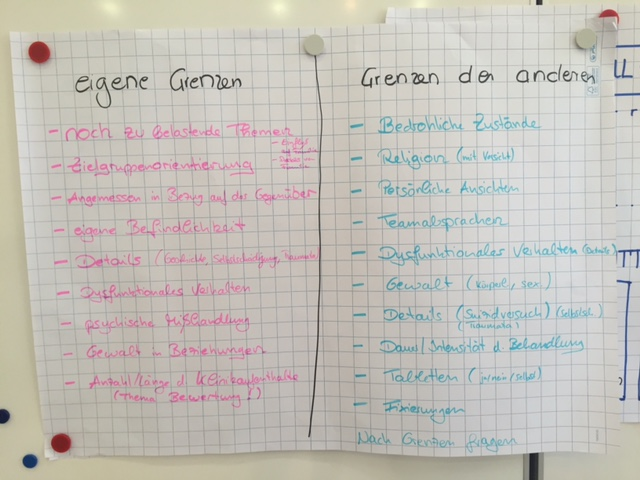 eigene Grenzen
- noch zu belastende Themen
- Zielgruppenorientierung
- Angemessen in Bezug auf das Gegenüber
- eigene Befindlichkeit
- Details (
- Dysfunktionales Verhalten
- psychische Mißhandlung
- Gewalt in Beziehungen
- Anzahl/Länge d. Klinikaufenthalte
(Thema Bewertung!)
Grenzen der anderen
- Bedrohliche Zustände
- Religion (mit Vorsicht)
- Persönliche Ansichten
- Teamabsprachen
- Dysfunktionales Verhalten (Details)
- Gewalt (körperl., sex.)
- Details (Suizidversuch) (
(Traumata)
- Dauer/Intensität d. Behandlung
- Tabletten (
- Fixierungen
Nach Grenzen fragen